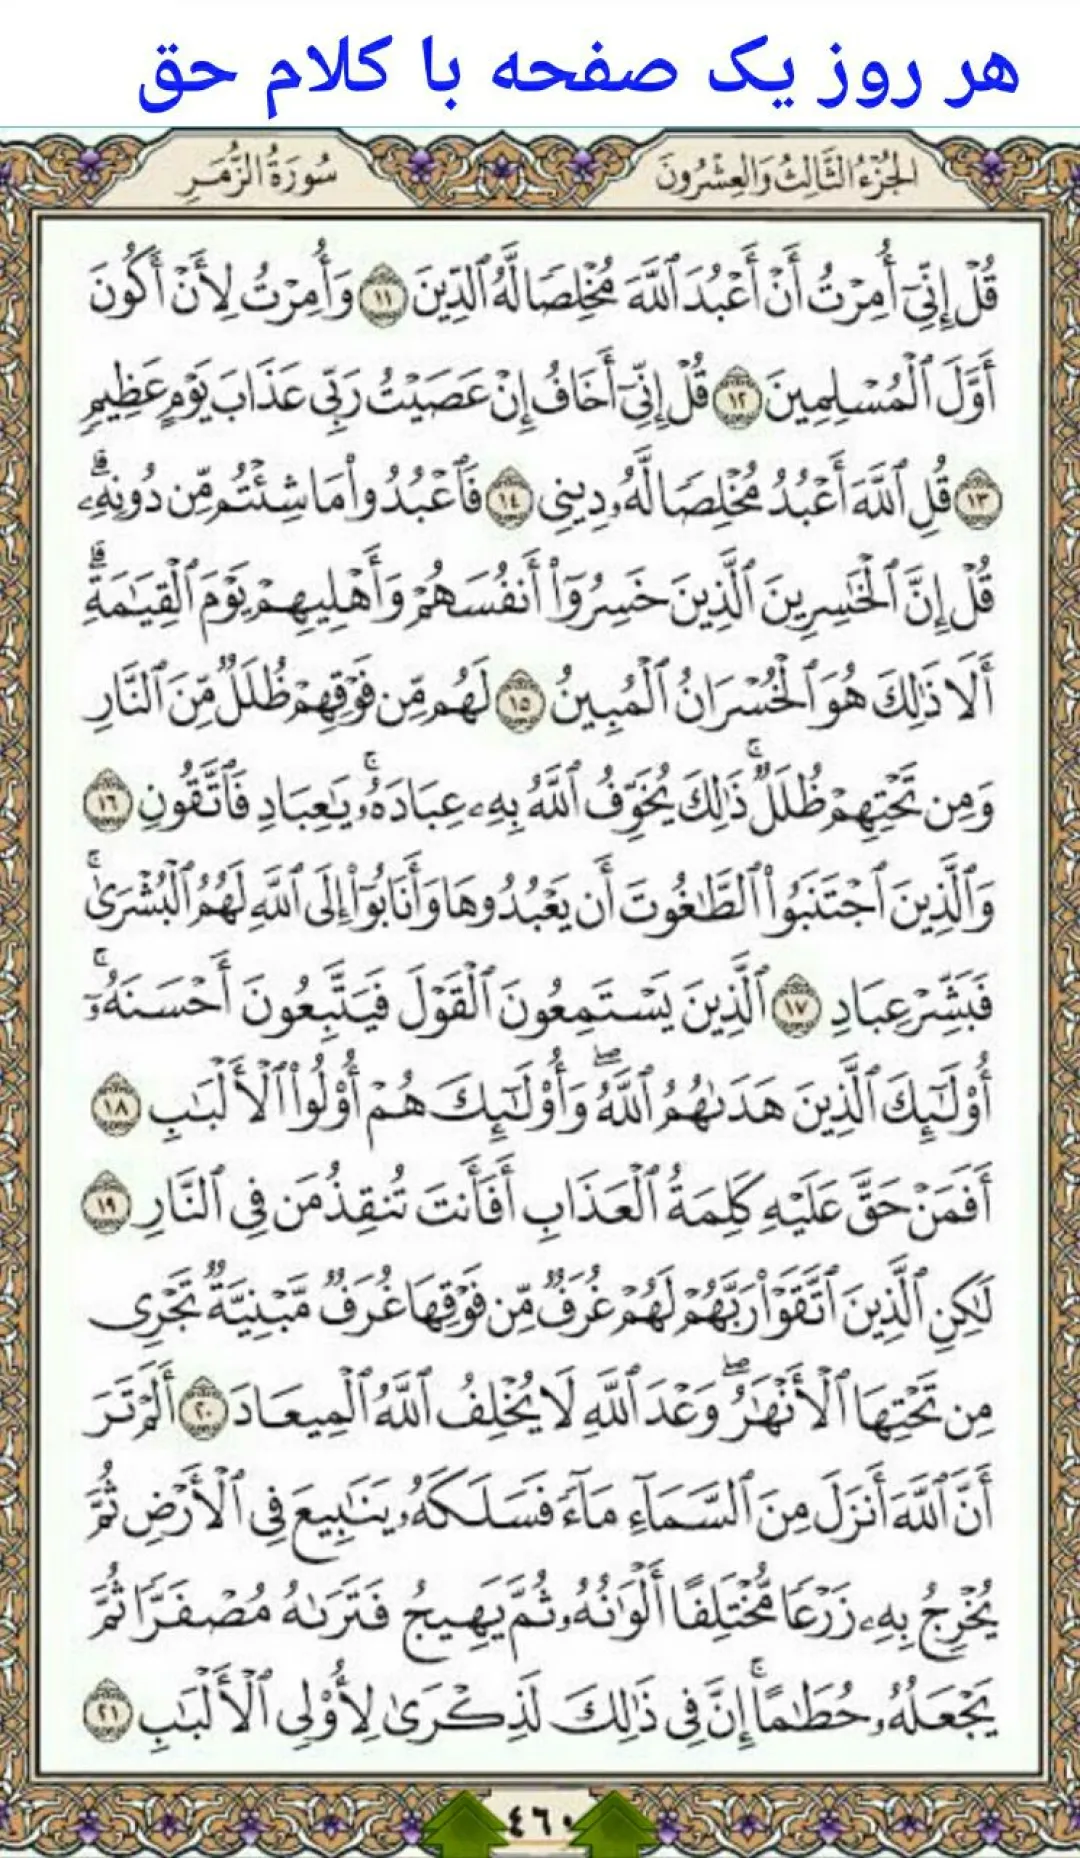 هر روز یک صفحه با کلام حق
الجُزْءُ الثَّالِثُ وَالعِشْرُونَ
سُورَةُ الزُّمَرِ
قُلْ إِنِّىٓ أُمِرْتُ أَنْ أَعْبُدَ ٱللَّهَ مُخْلِصًا لَّهُ ٱلدِّينَ ١١ وَأُمِرْتُ لِأَنْ أَكُونَ
أَوَّلَ ٱلْمُسْلِمِينَ ١٢ قُلْ إِنِّىٓ أَخَافُ إِنْ عَصَيْتُ رَبِّى عَذَابَ يَوْمٍ عَظِيمٍ
١٣ قُلِ ٱللَّهَ أَعْبُدُ مُخْلِصًا لَّهُۥ دِينِى ١٤ فَٱعْبُدُوا۟ مَا شِئْتُم مِّن دُونِهِۦ ۗ
قُلْ إِنَّ ٱلْخَٰسِرِينَ ٱلَّذِينَ خَسِرُوٓا۟ أَنفُسَهُمْ وَأَهْلِيهِمْ يَوْمَ ٱلْقِيَٰمَةِ ۗ
أَلَا ذَٰلِكَ هُوَ ٱلْخُسْرَانُ ٱلْمُبِينُ ١٥ لَهُم مِّن فَوْقِهِمْ ظُلَلٌ مِّنَ ٱلنَّارِ
وَمِن تَحْتِهِمْ ظُلَلٌ ۚ ذَٰلِكَ يُخَوِّفُ ٱللَّهُ بِهِۦ عِبَادَهُۥ ۚ يَٰعِبَادِ فَٱتَّقُونِ ١٦
وَٱلَّذِينَ ٱجْتَنَبُوا۟ ٱلطَّٰغُوتَ أَن يَعْبُدُوهَا وَأَنَابُوٓا۟ إِلَى ٱللَّهِ لَهُمُ ٱلْبُشْرَىٰ ۚ
فَبَشِّرْ عِبَادِ ١٧ ٱلَّذِينَ يَسْتَمِعُونَ ٱلْقَوْلَ فَيَتَّبِعُونَ أَحْسَنَهُۥٓ ۚ
أُو۟لَٰٓئِكَ ٱلَّذِينَ هَدَىٰهُمُ ٱللَّهُ ۖ وَأُو۟لَٰٓئِكَ هُمْ أُو۟لُوا۟ ٱلْأَلْبَٰبِ ١٨
أَفَمَنْ حَقَّ عَلَيْهِ كَلِمَةُ ٱلْعَذَابِ أَفَأَنتَ تُنقِذُ مَن فِى ٱلنَّارِ ١٩
لَٰكِنِ ٱلَّذِينَ ٱتَّقَوْا۟ رَبَّهُمْ لَهُمْ غُرَفٌ مِّن فَوْقِهَا غُرَفٌ مَّبْنِيَّةٌ تَجْرِى
مِن تَحْتِهَا ٱلْأَنْهَٰرُ ۖ وَعْدَ ٱللَّهِ لَا يُخْلِفُ ٱللَّهُ ٱلْمِيعَادَ ٢٠ أَلَمْ تَرَ
أَنَّ ٱللَّهَ أَنزَلَ مِنَ ٱلسَّمَآءِ مَآءً فَسَلَكَهُۥ يَنَٰبِيعَ فِى ٱلْأَرْضِ ثُمَّ
يُخْرِجُ بِهِۦ زَرْعًا مُّخْتَلِفًا أَلْوَٰنُهُۥ ثُمَّ يَهِيجُ فَتَرَىٰهُ مُصْفَرًّا ثُمَّ
يَجْعَلُهُۥ حُطَٰمًا ۚ إِنَّ فِى ذَٰلِكَ لَذِكْرَىٰ لِأُو۟لِى ٱلْأَلْبَٰبِ ٢١
٤٦٠